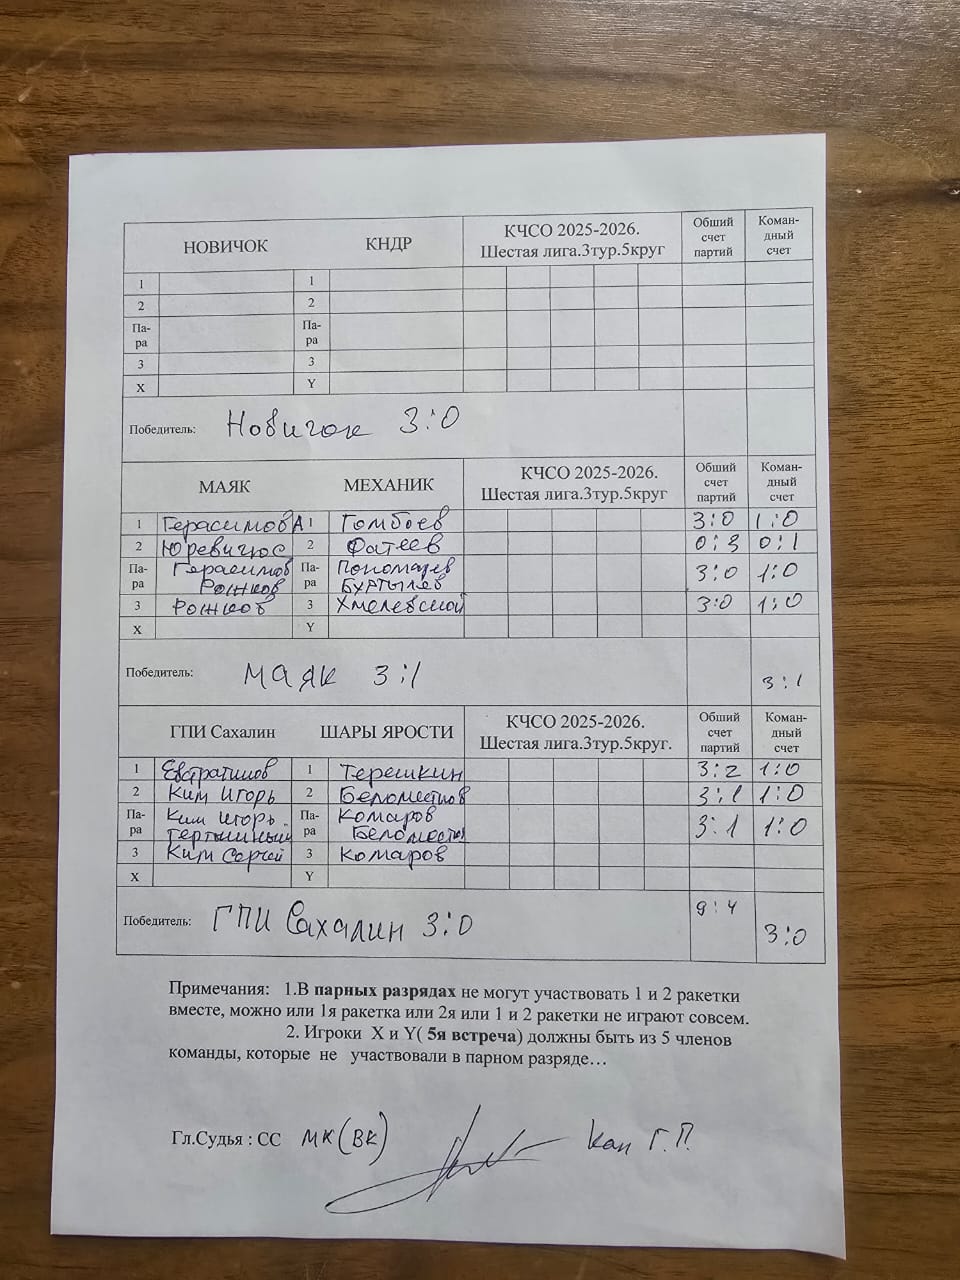 НОВИЧОК КНДР КЧСО 2025-2026. Шестая лига.3тур.5круг Общий счет партий Коман-дный счет
1 1
2 2
Па-ра Па-ра
3 3
X Y
Победитель: Новичок 3:0
МАЯК МЕХАНИК КЧСО 2025-2026. Шестая лига.3тур.5круг Общий счет партий Коман-дный счет
1 Герасимов А 1 Гомбоев 3:0 1:0
2 Юревичюс 2 Фатеев 0:3 0:1
Па-ра Герасимов Рожков Па-ра Пономарев Буртылев 3:0 1:0
3 Рожков 3 Хмелевской 3:0 1:0
X Y
Победитель: Маяк 3:1 3:1
ГПИ Сахалин ШАРЫ ЯРОСТИ КЧСО 2025-2026. Шестая лига.3тур.5круг. Общий счет партий Коман-дный счет
1 Евстратимов 1 Терешкин 3:2 1:0
2 Ким Игорь 2 Беломестнов 3:1 1:0
Па-ра Ким Игорь Па-ра Комаров 3:1 1:0
3 Ким Сергей 3 Комаров
X Y
Победитель: ГПИ Сахалин 3:0 9:4 3:0
Примечания: 1.В парных разрядах не могут участвовать 1 и 2 ракетки
вместе, можно или 1я ракетка или 2я или 1 и 2 ракетки не играют совсем.
2. Игроки X и Y( 5я встреча) должны быть из 5 членов
команды, которые не участвовали в парном разряде…
Гл.Судья : СС МК(ВК) Кан Г.П.